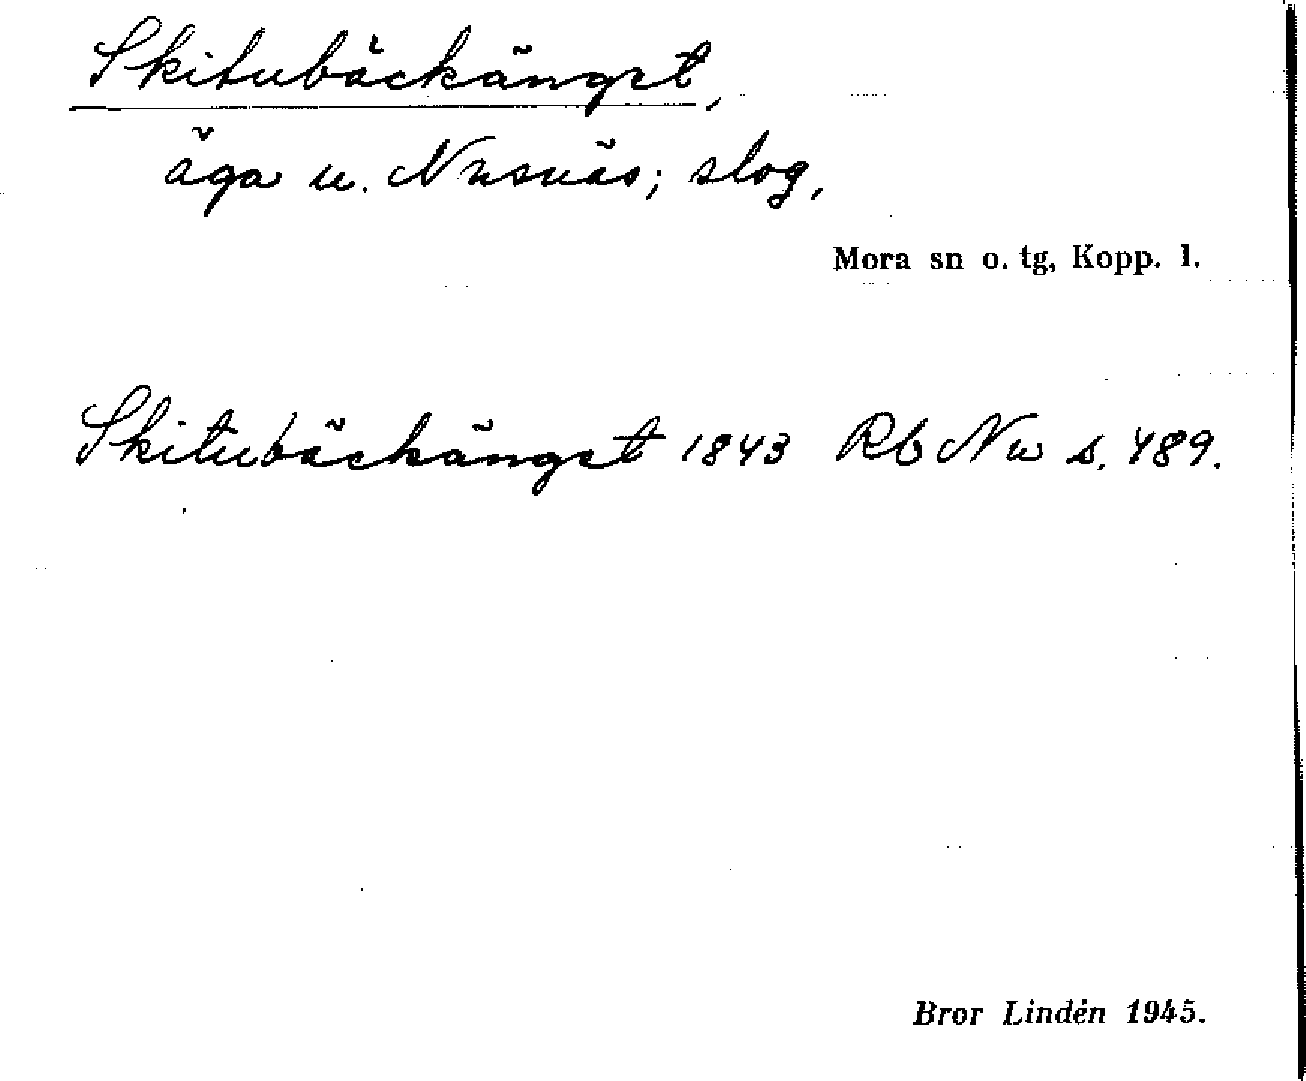 Skitubäckänget,
äga u. Nusnäs; slog,
Mora sn o. tg, Kopp. l.
Skitubäckänget 1843 Rb Nu s. 489.
Bror Lindén 1945.